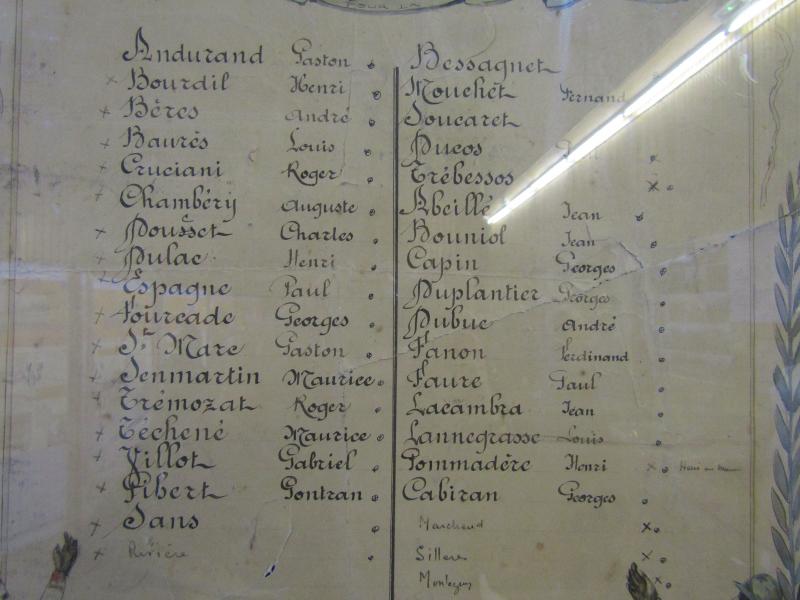 POUR LA
Andurand Gaston
Bourdil Henri
Bères André
Baurès Louis
Cruciani Roger
Chambéry Auguste
Pousset Charles
Dulac Henri
Espagne Paul
Fourcade Georges
St Marc Gaston
Senmartin Maurice
Trémozat Roger
Téchené Maurice
Villot Gabriel
Pibert Gontran
Sans
Rivière
Bessagnet
Mouchèt Fernand
Soucaret
Ducos
Trébessos
Abeillé Jean
Bouniol Jean
Capin Georges
Duplantier Georges
Dubuc André
Fanon Ferdinand
Faure Paul
Lacambra Jean
Lannegrasse Louis
Pommadère Henri
Cabiran Georges
Marchand
Sillere